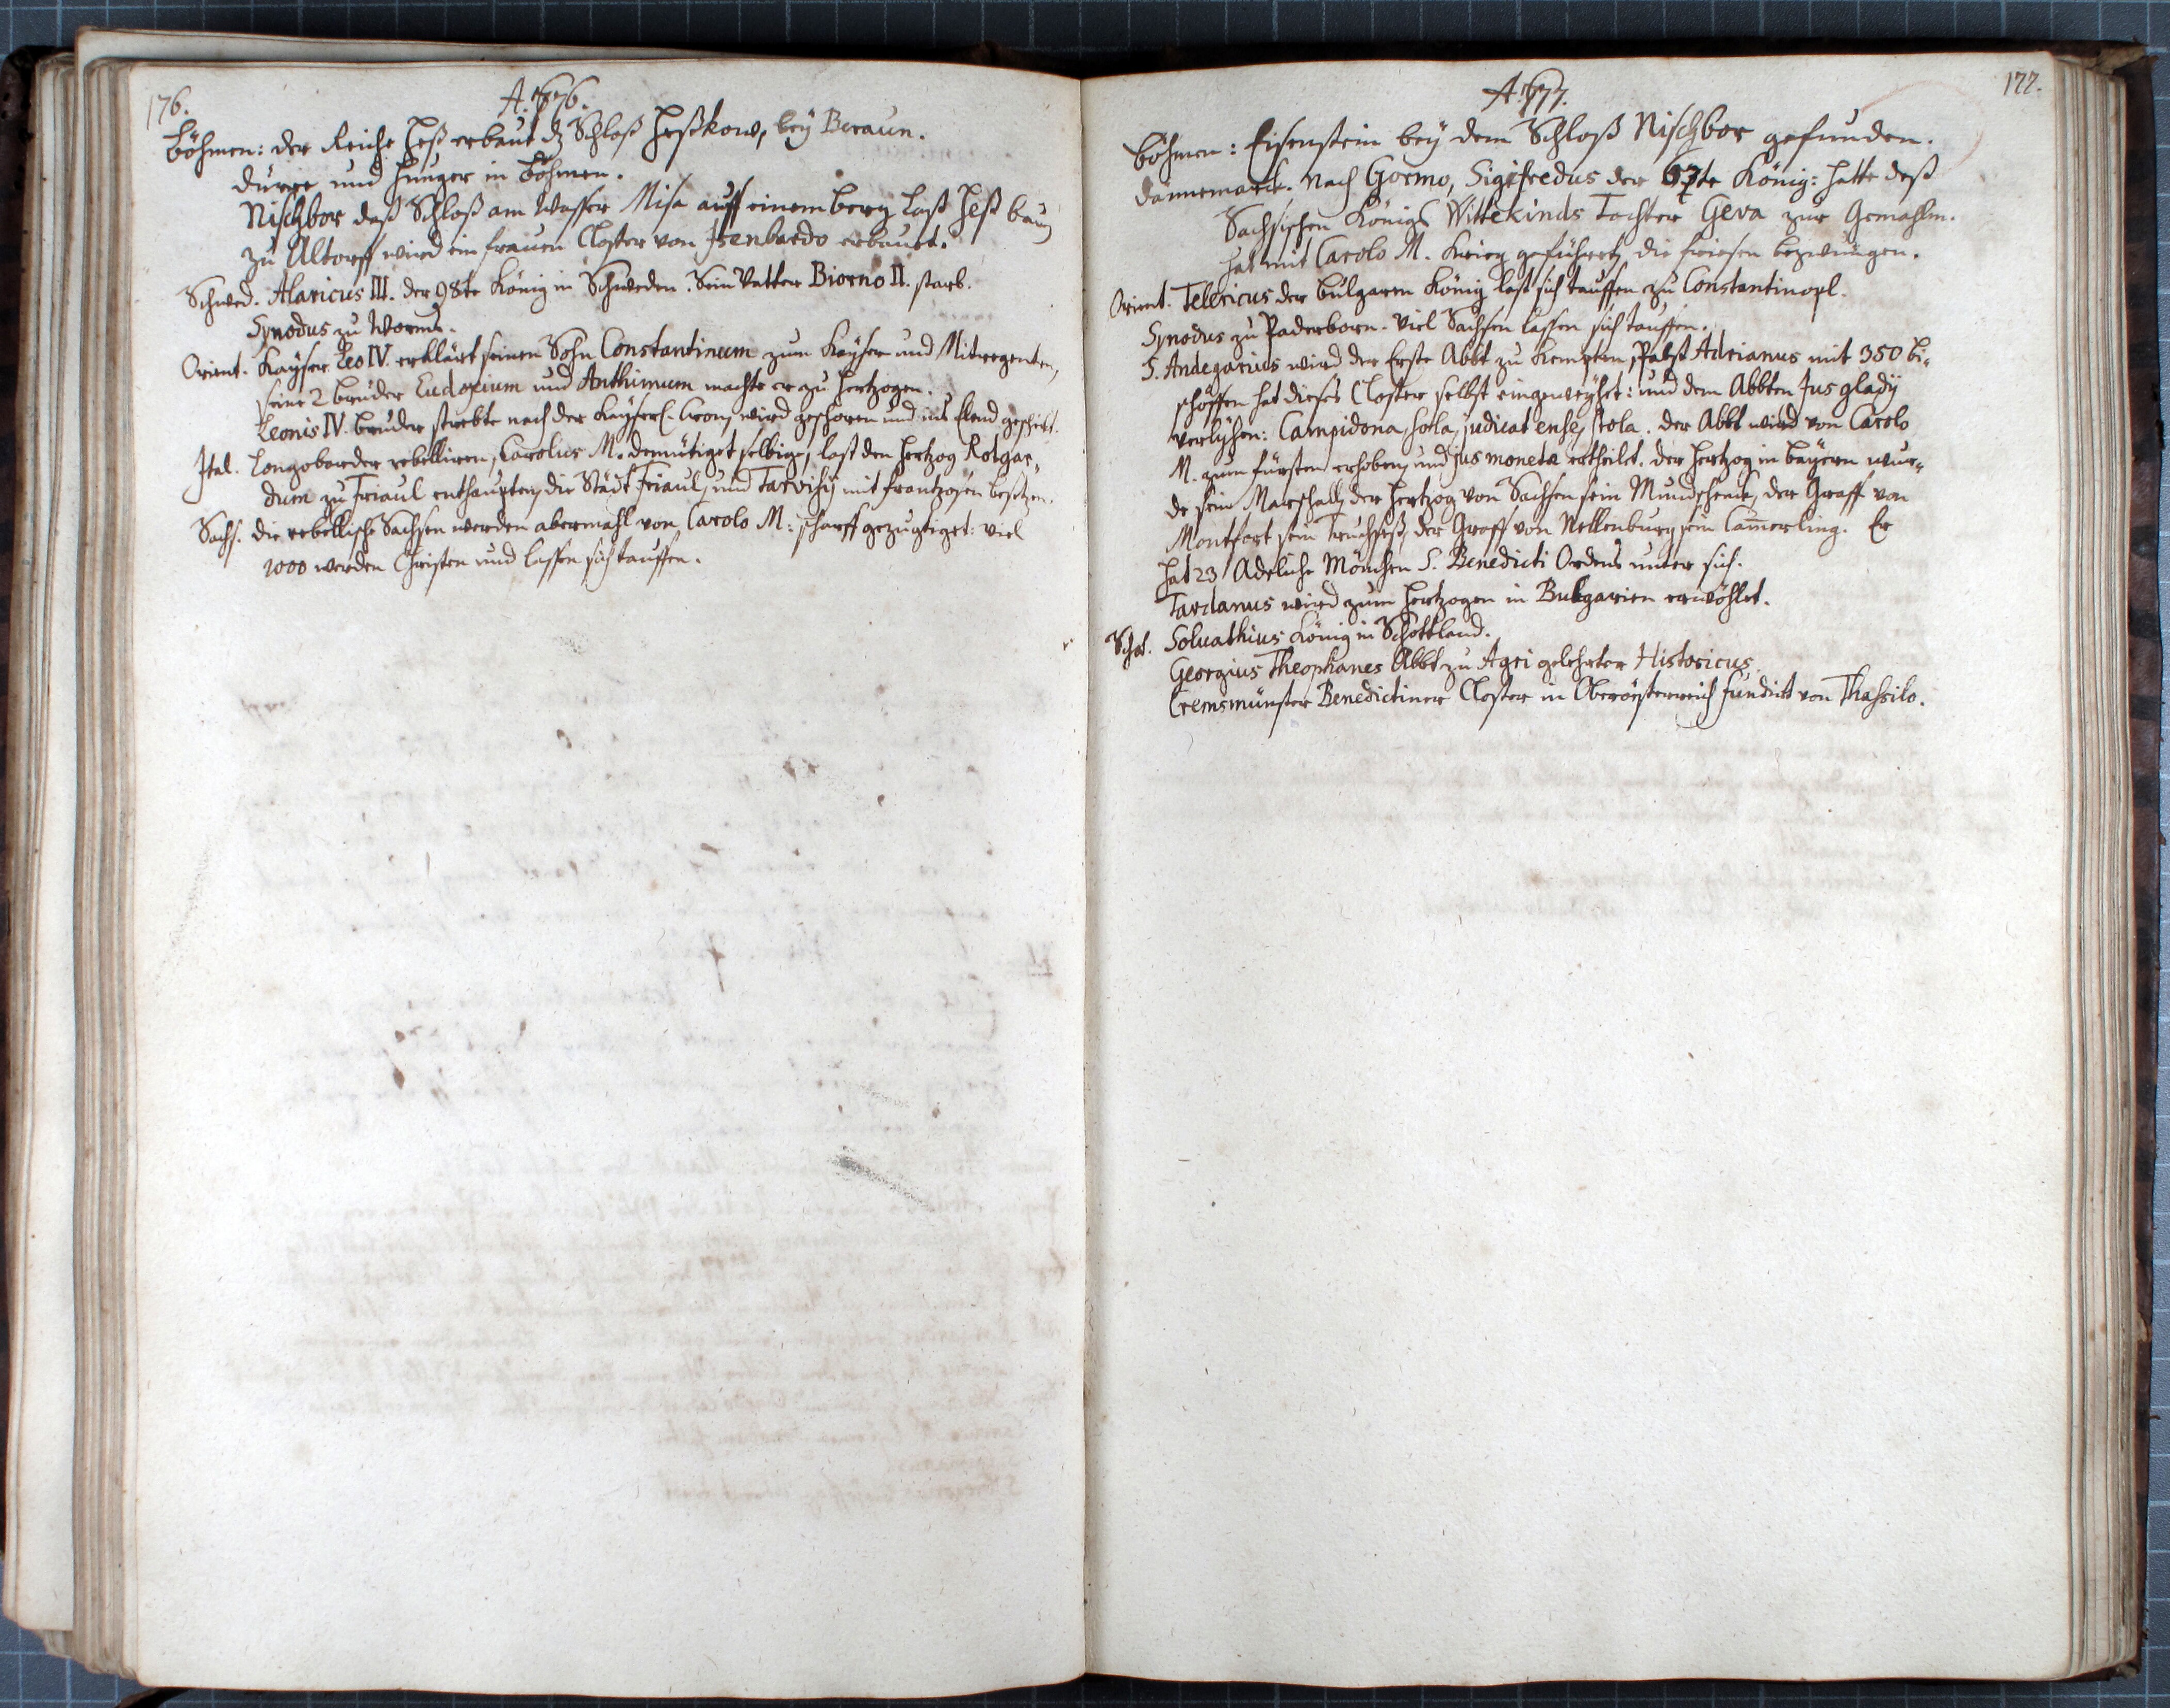 176.
A. 776.
Böhmen: der Reiche Heß erbaut dz Schloß Heßkow, bey Beraun.
Dürre und Hunger in Böhmen.
Nischbor daß Schloß am Wasser Misa auff einem berg last Heß bauen
zu Altorff wird ein frauen Closter von Isenbardo erbauet.
Schwed. Alaricus III. der 98te König in Schweden. Sein Vatter Biorno II. starb.
Synodus zu Worms.
Orient. Kayser Leo IV. erklärt seinen Sohn Constantinum zum Kayser und Mitregenten,
seine 2 brüder Eudoxium und Anthimum machte er zu Hertzogen.
Leonis IV. bruder strebte nach der Kayserl. Cron, wird geschoren und ins Elend geschikt.
Ital. Longobarder rebelliren, Carolus M. demütiget selbige, last den Hertzog Rotgau-
dum zu Friaul enthaupten, die Städt Friaul, und Tarvisij mit frantzosen besetzen.
Sachs. die rebellische Sachsen werden abermahl von Carolo M: scharff gezugtiget: viel
1000 werden Christen und lassen sich tauffen.
177.
A. 777.
Böhmen: Eisenstein bey dem Schloß Nischbor gefunden.
Dännemarck. Nach Gormo, Sigifredus der 67te König: hatte deß
Sächsischen Königs Wittekinds Tochter Geva zur Gemahlin.
hat mit Carolo M. Krieg geführt, die friesen bezwungen.
Orient. Telericus der bulgaren König last sich tauffen zu Constantinopl.
Synodus zu Paderborn. Viel Sachsen lassen sich tauffen.
S. Andegarius wird der Erste Abbt zu Kempten, Pabst Adrianus mit 350 bi-
schöffen hat dieses Closter selbst eingeweyhet: und dem Abbten Jus gladÿ
verlyhen: Campidona sola, judicat ense, stola. Der Abbt wird von Carolo
M. zum fürsten erhoben, und jus monetæ ertheilet. der Hertzog in bayern wur-
de sein Marschall, der Hertzog von Sachsen sein Mundschenck, der Graff von
Montfort sein Truchseß, der Graff von Nellenburg sein Cam̄erling. Er
hat 23 Adeliche Mönchen S. Benedicti Ordens unter sich.
Tardanus wird zum Hertzogen in Bulgarien erwöhlet.
Schot. Soluathius König in Schottland.
Georgius Theophanes Abbt zu Agri gelehrter Historicus.
Cremsmünster Benedictiner Closter in Oberösterreich fundirt von Thassilo.